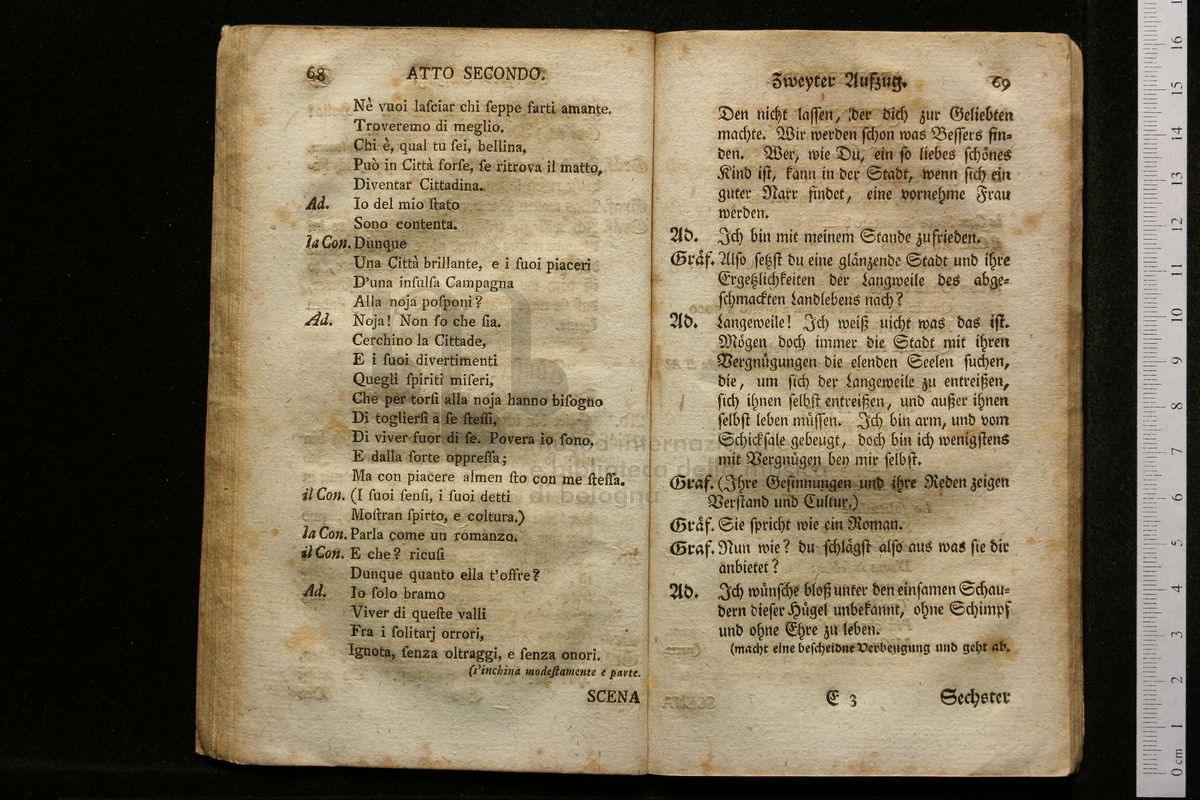 68 ATTO SECONDO.
Nè vuoi laſciar chi ſeppe farti amante.
Troveremo di meglio.
Chi è, qual tu ſei, bellina,
Può in Città forſe, ſe ritrova il matto,
Diventar Cittadina.
Ad. Io del mio ſtato
Sono contenta.
la Con. Dunque
Una Città brillante, e i ſuoi piaceri
D'una inſulſa Campagna
Alla noja poſponi?
Ad. Noja! Non ſo che ſia.
Cerchino la Cittade,
E i ſuoi divertimenti
Quegli ſpiriti miſeri,
Che per torſi alla noja hanno biſogno
Di toglierſi a ſe ſteſſi,
Di viver fuor di ſe. Povera io ſono,
E dalla ſorte oppreſſa;
Ma con piacere almen ſto con me ſteſſa.
il Con. (I ſuoi ſenſi, i ſuoi detti
Moſtran ſpirto, e coltura.)
la Con. Parla come un romanzo.
il Con. E che? ricuſi
Dunque quanto ella t'offre?
Ad. Io ſolo bramo
Viver di queſte valli
Fra i ſolitarj orrori,
Ignota, ſenza oltraggi, e ſenza onori.
(s'inchina modeſtamente e parte.
SCENA
Zweyter Aufzug. 69
Den nicht laſſen, der dich zur Geliebten
machte. Wir werden ſchon was Beſſers fin-
den. Wer, wie Du, ein ſo liebes ſchönes
Kind iſt, kann in der Stadt, wenn ſich ein
guter Narr findet, eine vornehme Frau
werden.
Ad. Ich bin mit meinem Stande zufrieden.
Gräf. Alſo ſetzſt du eine glänzende Stadt und ihre
Ergetzlichkeiten der Langweile des abge-
ſchmackten Landlebens nach?
Ad. Langeweile! Ich weiß nicht was das iſt.
Mögen doch immer die Stadt mit ihren
Vergnügungen die elenden Seelen ſuchen,
die, um ſich der Langeweile zu entreißen,
ſich ihnen ſelbſt entreißen, und außer ihnen
ſelbſt leben müſſen. Ich bin arm, und vom
Schickſale gebeugt, doch bin ich wenigſtens
mit Vergnügen bey mir ſelbſt.
Graf. (Ihre Geſinnungen und ihre Reden zeigen
Verſtand und Cultur.)
Gräf. Sie ſpricht wie ein Roman.
Graf. Nun wie? du ſchlägſt alſo aus was ſie dir
anbietet?
Ad. Ich wünſche bloß unter den einſamen Schau-
dern dieſer Hügel unbekannt, ohne Schimpf
und ohne Ehre zu leben.
(macht eine beſcheidne Verbeugung und geht ab.
E 3 Sechster